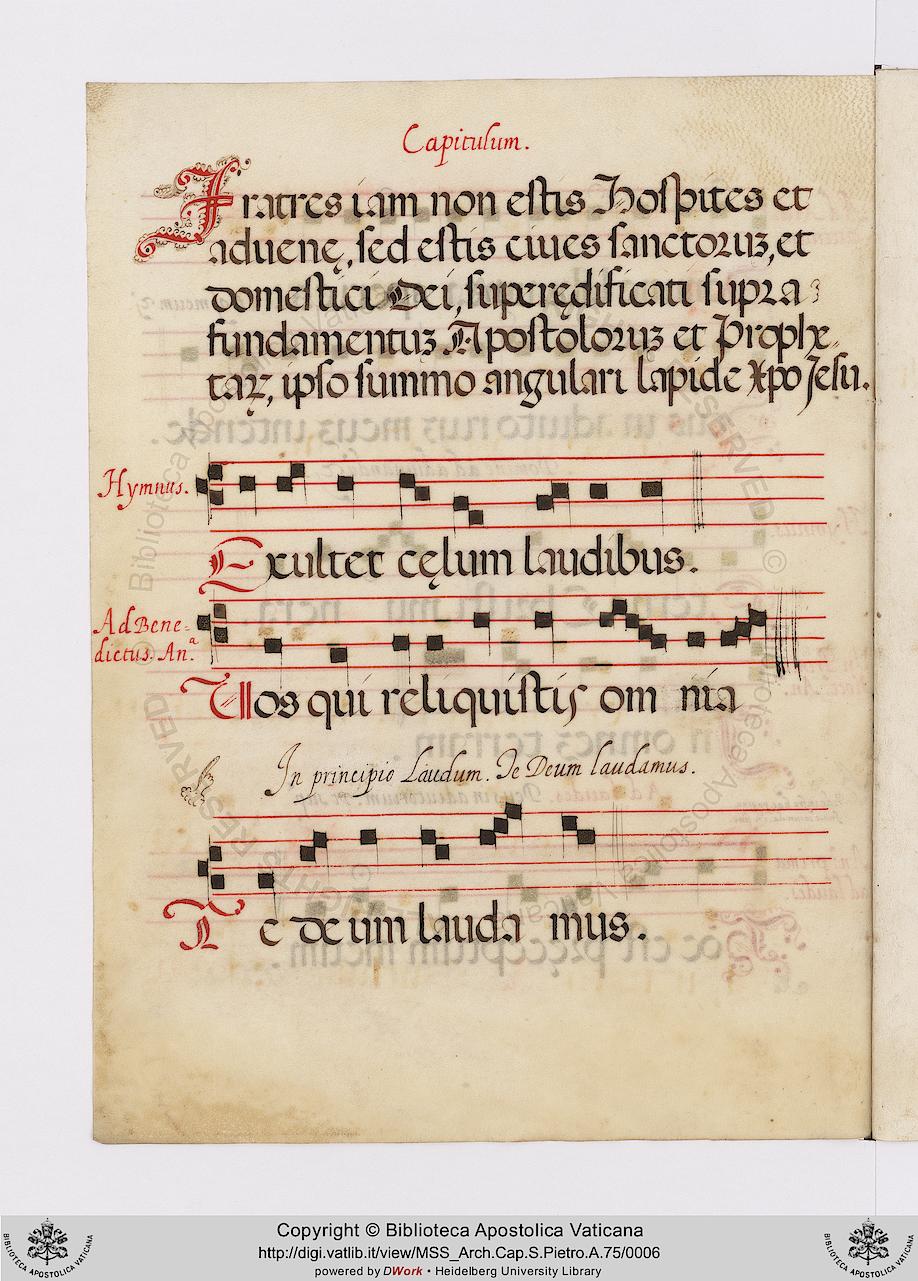 Capitulum.
Fratres iam non estis Hospites et
aduenę, sed estis ciues sanctoruʒ, et
domestici Dei, superędificati supra
fundamentuʒ Apostoloruʒ et Prophe-
taꝝ, ipso summo angulari lapide Xpo Jesu.
Hymnus.
Exultet cęlum laudibus.
Ad Bene-
dictus. An.ª
Uos qui reliquistis om nia
In principio Laudum. Te Deum laudamus.
Te deum lauda mus.
Copyright © Biblioteca Apostolica Vaticana
http://digi.vatlib.it/view/MSS_Arch.Cap.S.Pietro.A.75/0006
powered by DWork • Heidelberg University Library
BIBLIOTECA APOSTOLICA VATICANA
BIBLIOTECA APOSTOLICA VATICANA